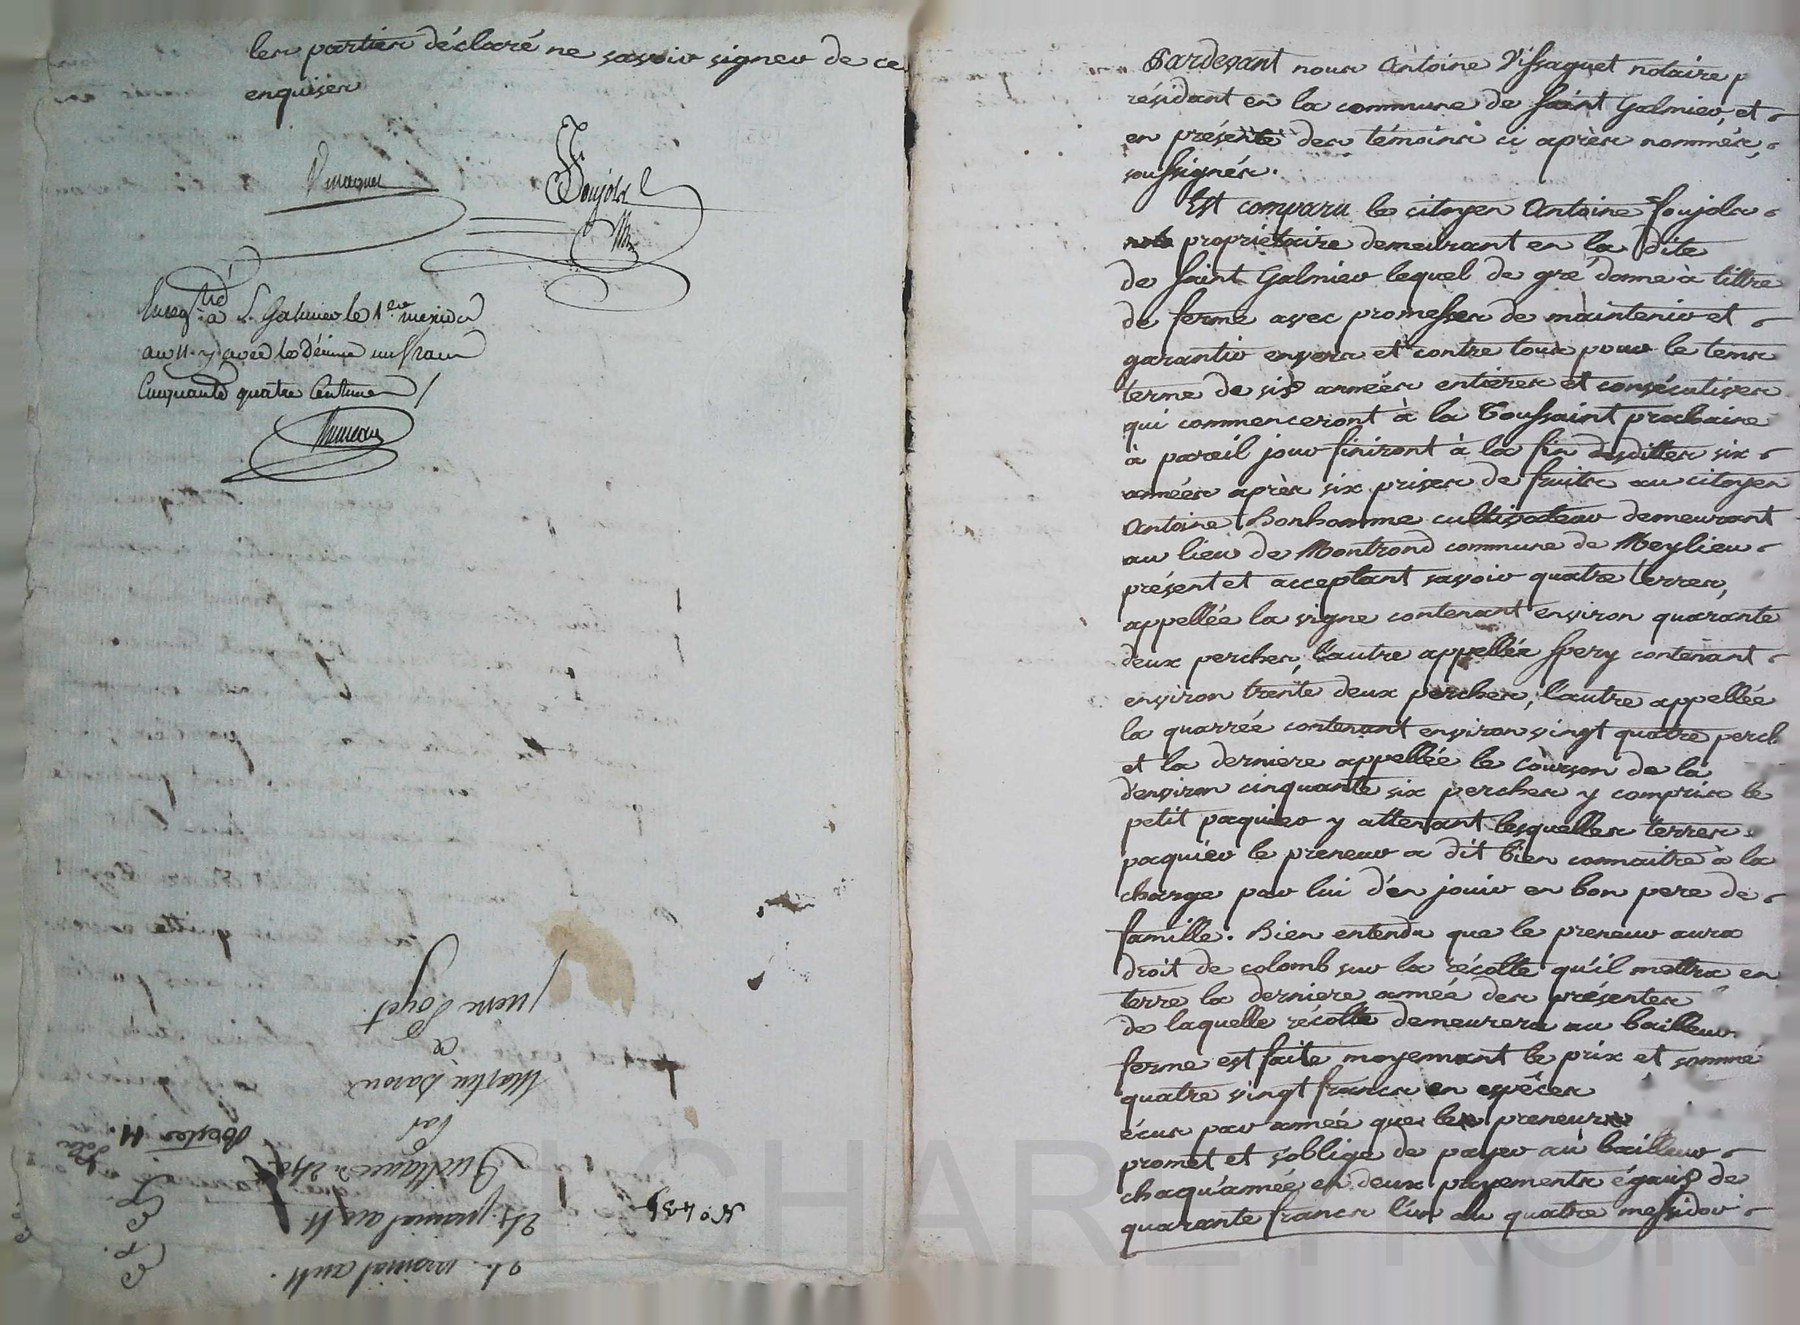 les parties déclaré ne savoir signer de ce
enquises
Vissaguet
Soujols
Enregtré à St. Galmier le 1er messidor
an 11. reçu avec le décime un franc
Cinquante quatre Centimes /
21. prairial an 11.
N.o 439
21. prairial an 11.
Quittance de
par
Martin
a
Pierre Poyet
Pardevant nous Antoine Vissaguet notaire p
résidant en la commune de Saint Galmier, et
en présence des témoins ci après nommés,
soussignés.
Est comparu le citoyen Antoine Soujols
propriétaire demeurant en la dite
de Saint Galmier lequel de gré donne à tittre
de ferme avec promesses de maintenir et
garantir envers et contre tous pour le tems
terme de six années entieres et consécutives
qui commenceront à la Toussaint prochaine
à pareil jour finiront à la fin desdittes six
années après six prises de fruits au citoyen
Antoine Bonhomme cultivateur demeurant
au lieu de Montrond commune de Meylieu
présent et acceptant savoir quatre terres,
appellée la vigne contenant environ quarante
deux perches, l'autre appellée Spery contenant
environ trente deux perches, l'autre appellée
la quarrée contenant environ vingt quatre perch
et la derniere appellée le Courson de la
d'environ cinquante six perches y compris le
petit paquier y attenant lesquelles terres
paquier le preneur a dit bien connaitre à la
charge par lui d'en jouir en bon pere de
famille. Bien entendu que le preneur aura
droit de colomb sur la récolte qu'il mettra en
terre la derniere année des présentes
de laquelle récolte demeurera au bailleur
ferme est faite moyennant le prix et somme
quatre vingt francs en espéces
écus par année que le preneur
promet et s'oblige de payer au bailleur
chaqu'année en deux payements égaux de
quarante francs l'un au quatre messidor
LCHARETRON